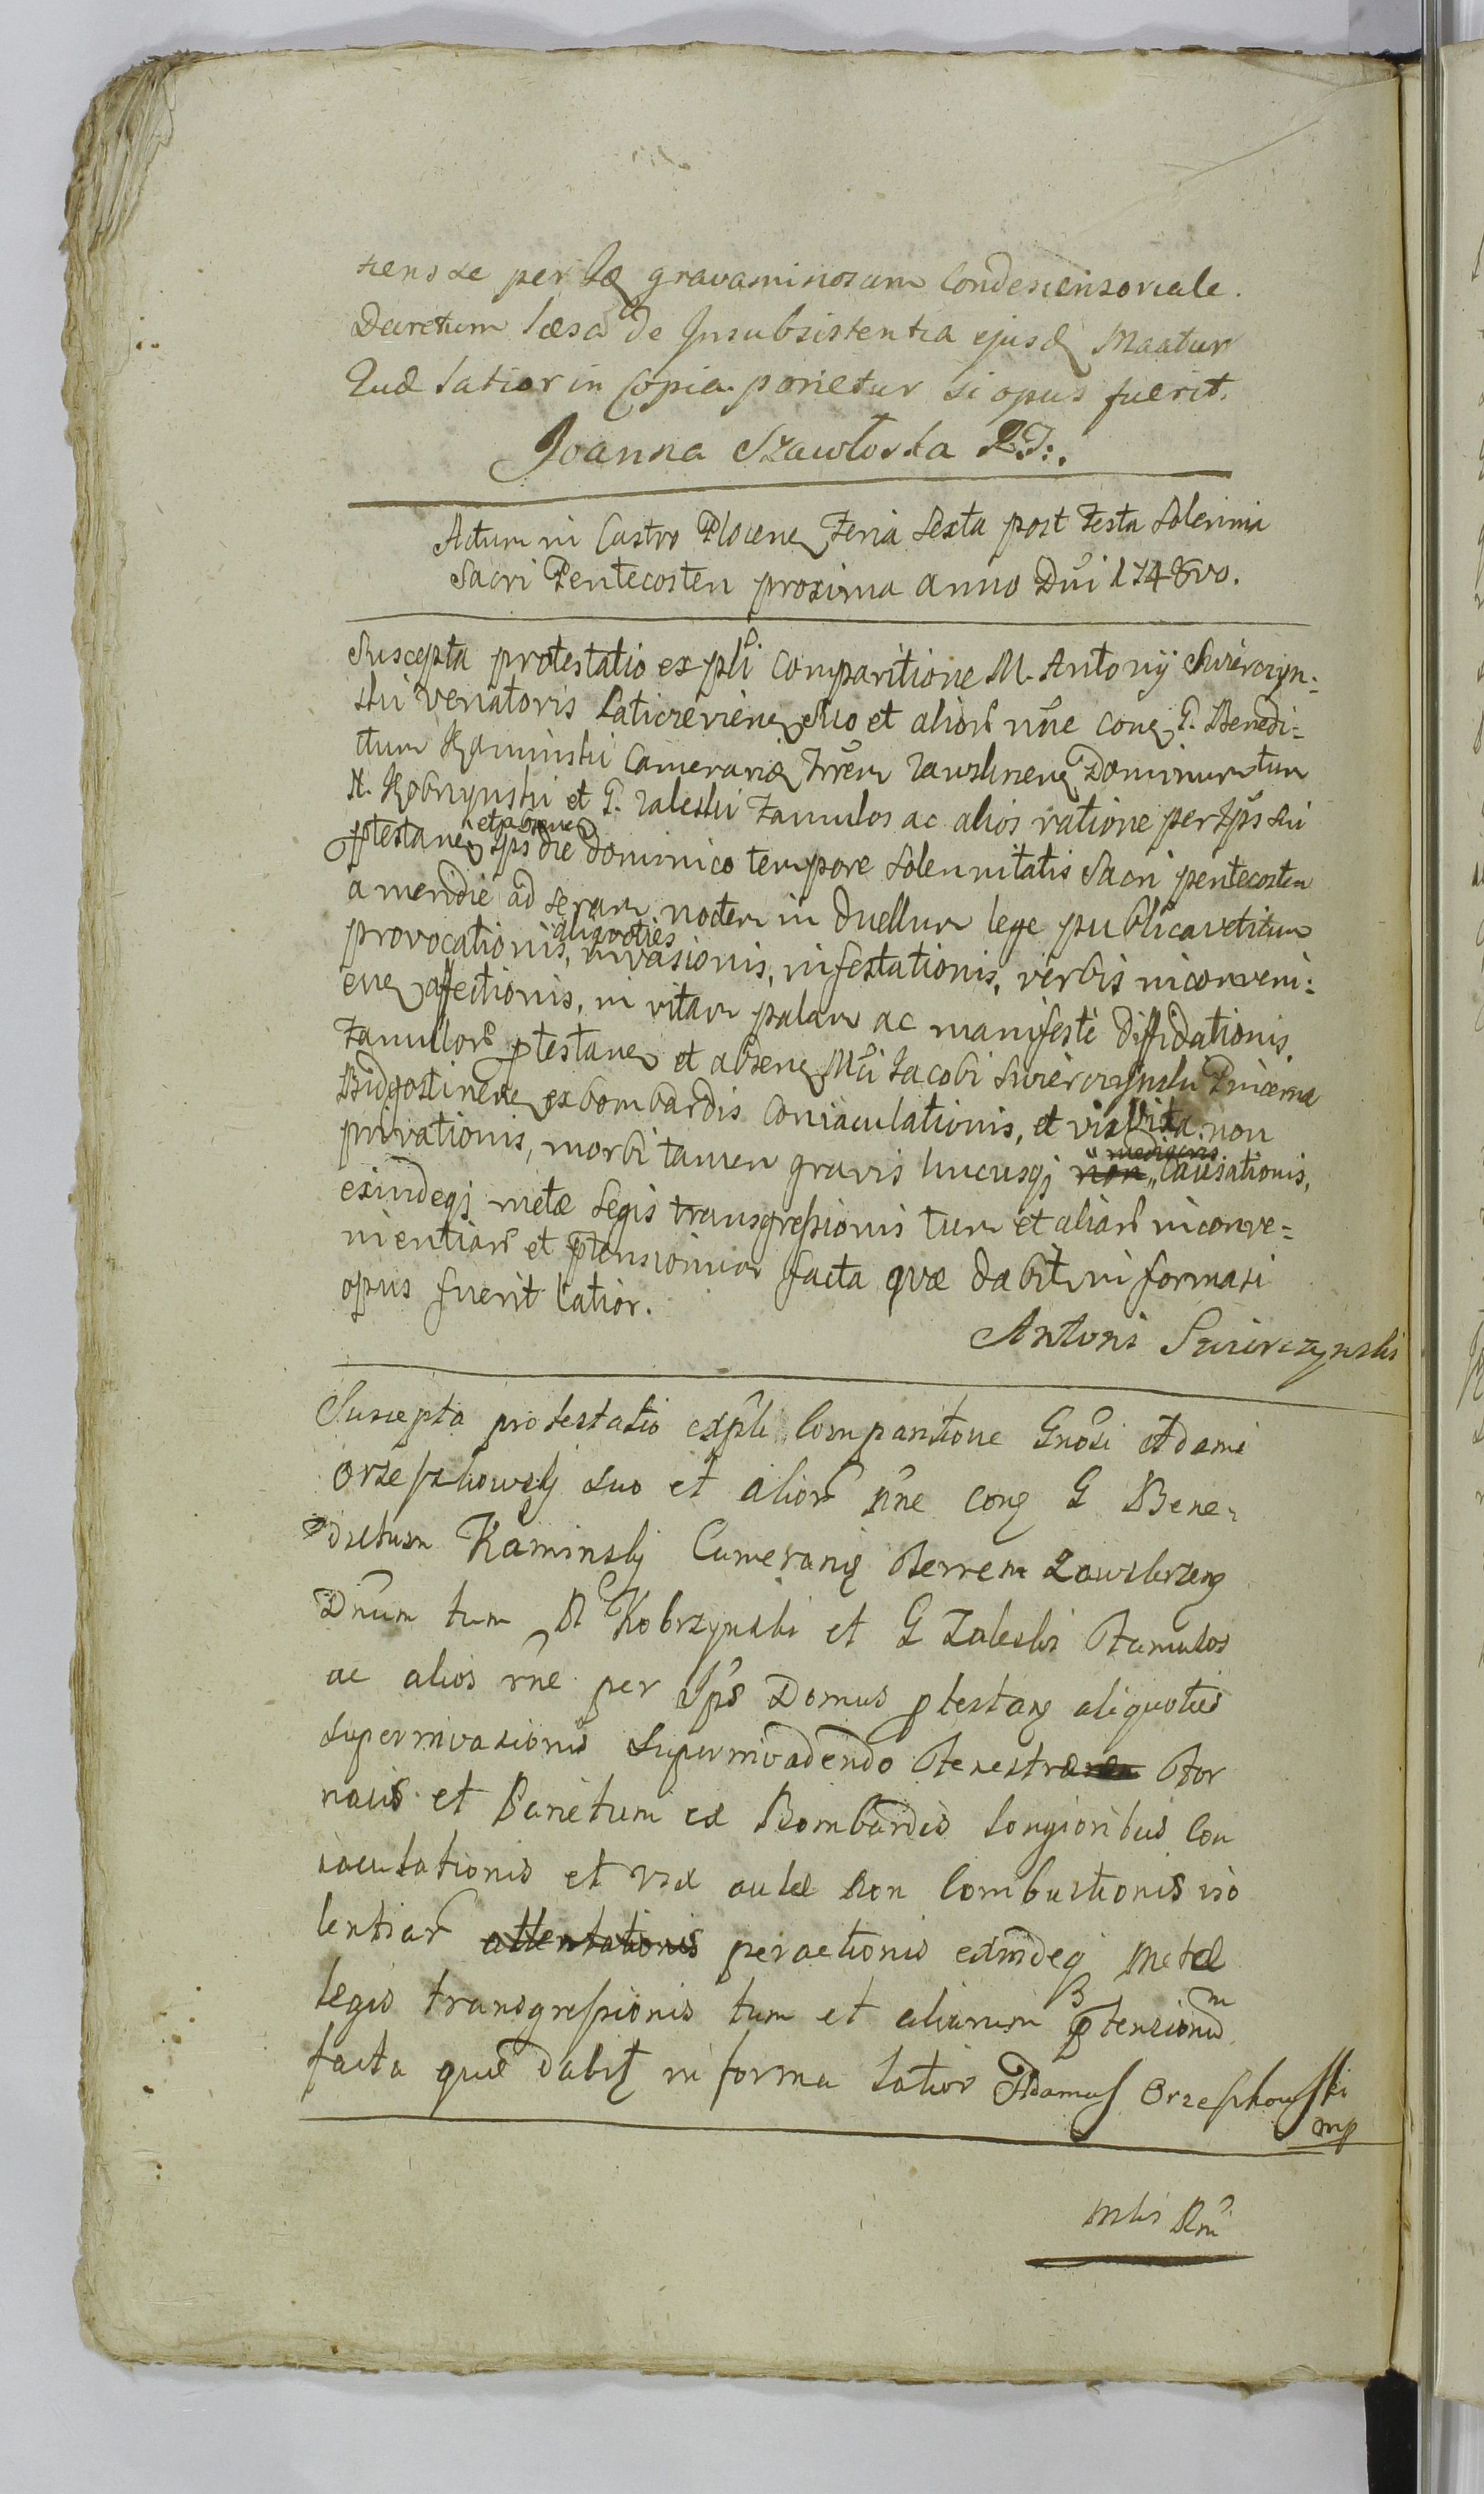 tens se per hoc gravaminosum Condescensoriale.
Decretum læsa de Insubsistentia ejusd Maatur
Quæ latior in Copia ponetur si opus fuerit.
Joanna Szawłoska
Actum in Castro Plocen Feria Sexta post Festa Solennia
Sacri Pentecosten proxima anno Dni 1748vo.
Suscepta protestatio ex psli Comparitione M. Antonij Swierczyn:
ski Venatoris Laticzevien suo et alior nne con G. Benedi:
ctum Kaminski Camerariu Trrem Zawskrinen Dominum tum
N. Kobrzynski et G. Zaleski Famulos ac alios ratione per Ips sui
ptestanen et absen Ips die dominico tempore Solennitatis Sacri pentecosten
a meridie ad seram noctem in duellum lege publica vetitum
provocationis, aliquoties invasionis, infestationis, verbis inconveni:
en affectionis, in vitam palam ac manifeste diffidationis
Famulor ptestanen et absen Mci Jacobi Swierczynski Pincerna
Bidgostinen ex bombardis Coniaculationis, et vix vita non
privationis, morbi tamen gravis hucusq non mediocris Causationis,
exindeq metæ legis transgressionis tum et aliar inconve=
nientiar et ptensionum facta quæ dabitur in forma si
opus fuerit latior.
Antoni Swierczynski
Suscepta protestatio ex psli Comparitione Gnosi Adami
Orzeszkowskj suo et alior nne con G Bene=
dictum Kaminskj Camerariu Terrem Zawskrzen
Dnum tum N Kobrzynski et G Zaleski Famulos
ac alios rne per Ips Domus ptestan aliquoties
superinvasionis superinvadendo Fenestra For
nacis et Parietum ex Bombardis longioribus Con
iaculationis et vix aulæ non Combustionis vio
lentiar attentationis peractionis exindeq metæ
legis transgressionis tum et aliarum ptensionum
facta quæ dabit in forma latior Adamus Orzeszkowski
mp